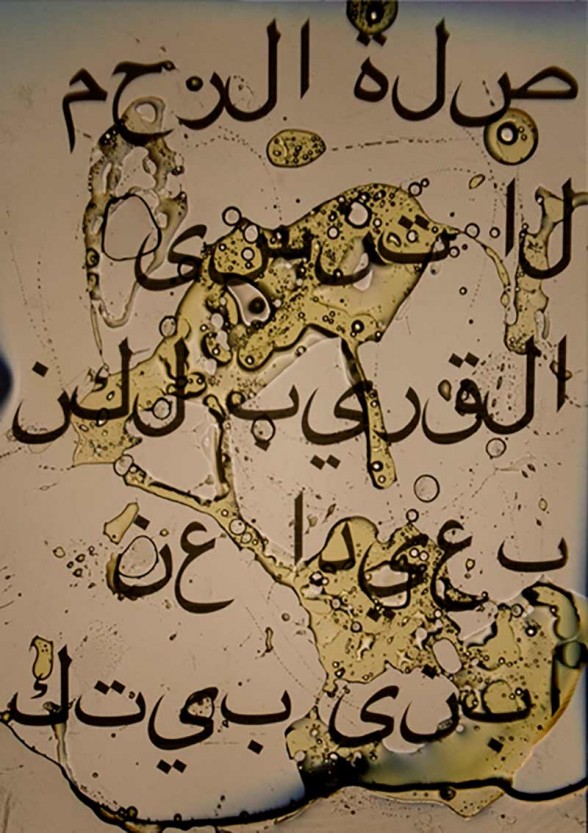 صلة الرحم
لا تنسى
القريب لكن
بعيدا عن
ابنى بيتك